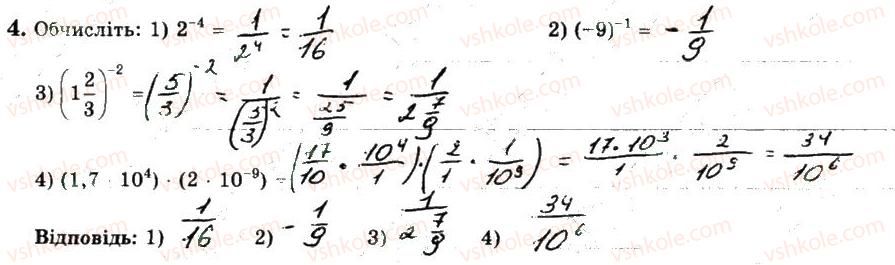 4. Обчисліть: 1) 2⁻⁴ = 1/2⁴ = 1/16 2) (−9)⁻¹ = −1/9
3) (1 2/3)⁻² = (5/3)⁻² = 1/(5/3)² = 1/(25/9) = 1/(2 7/9)
4) (1,7 · 10⁴) · (2 · 10⁻⁹) = (17/10 · 10⁴/1) · (2/1 · 1/10⁹) = 17·10³/1 · 2/10⁹ = 34/10⁶
Відповідь: 1) 1/16 2) −1/9 3) 1/(2 7/9) 4) 34/10⁶